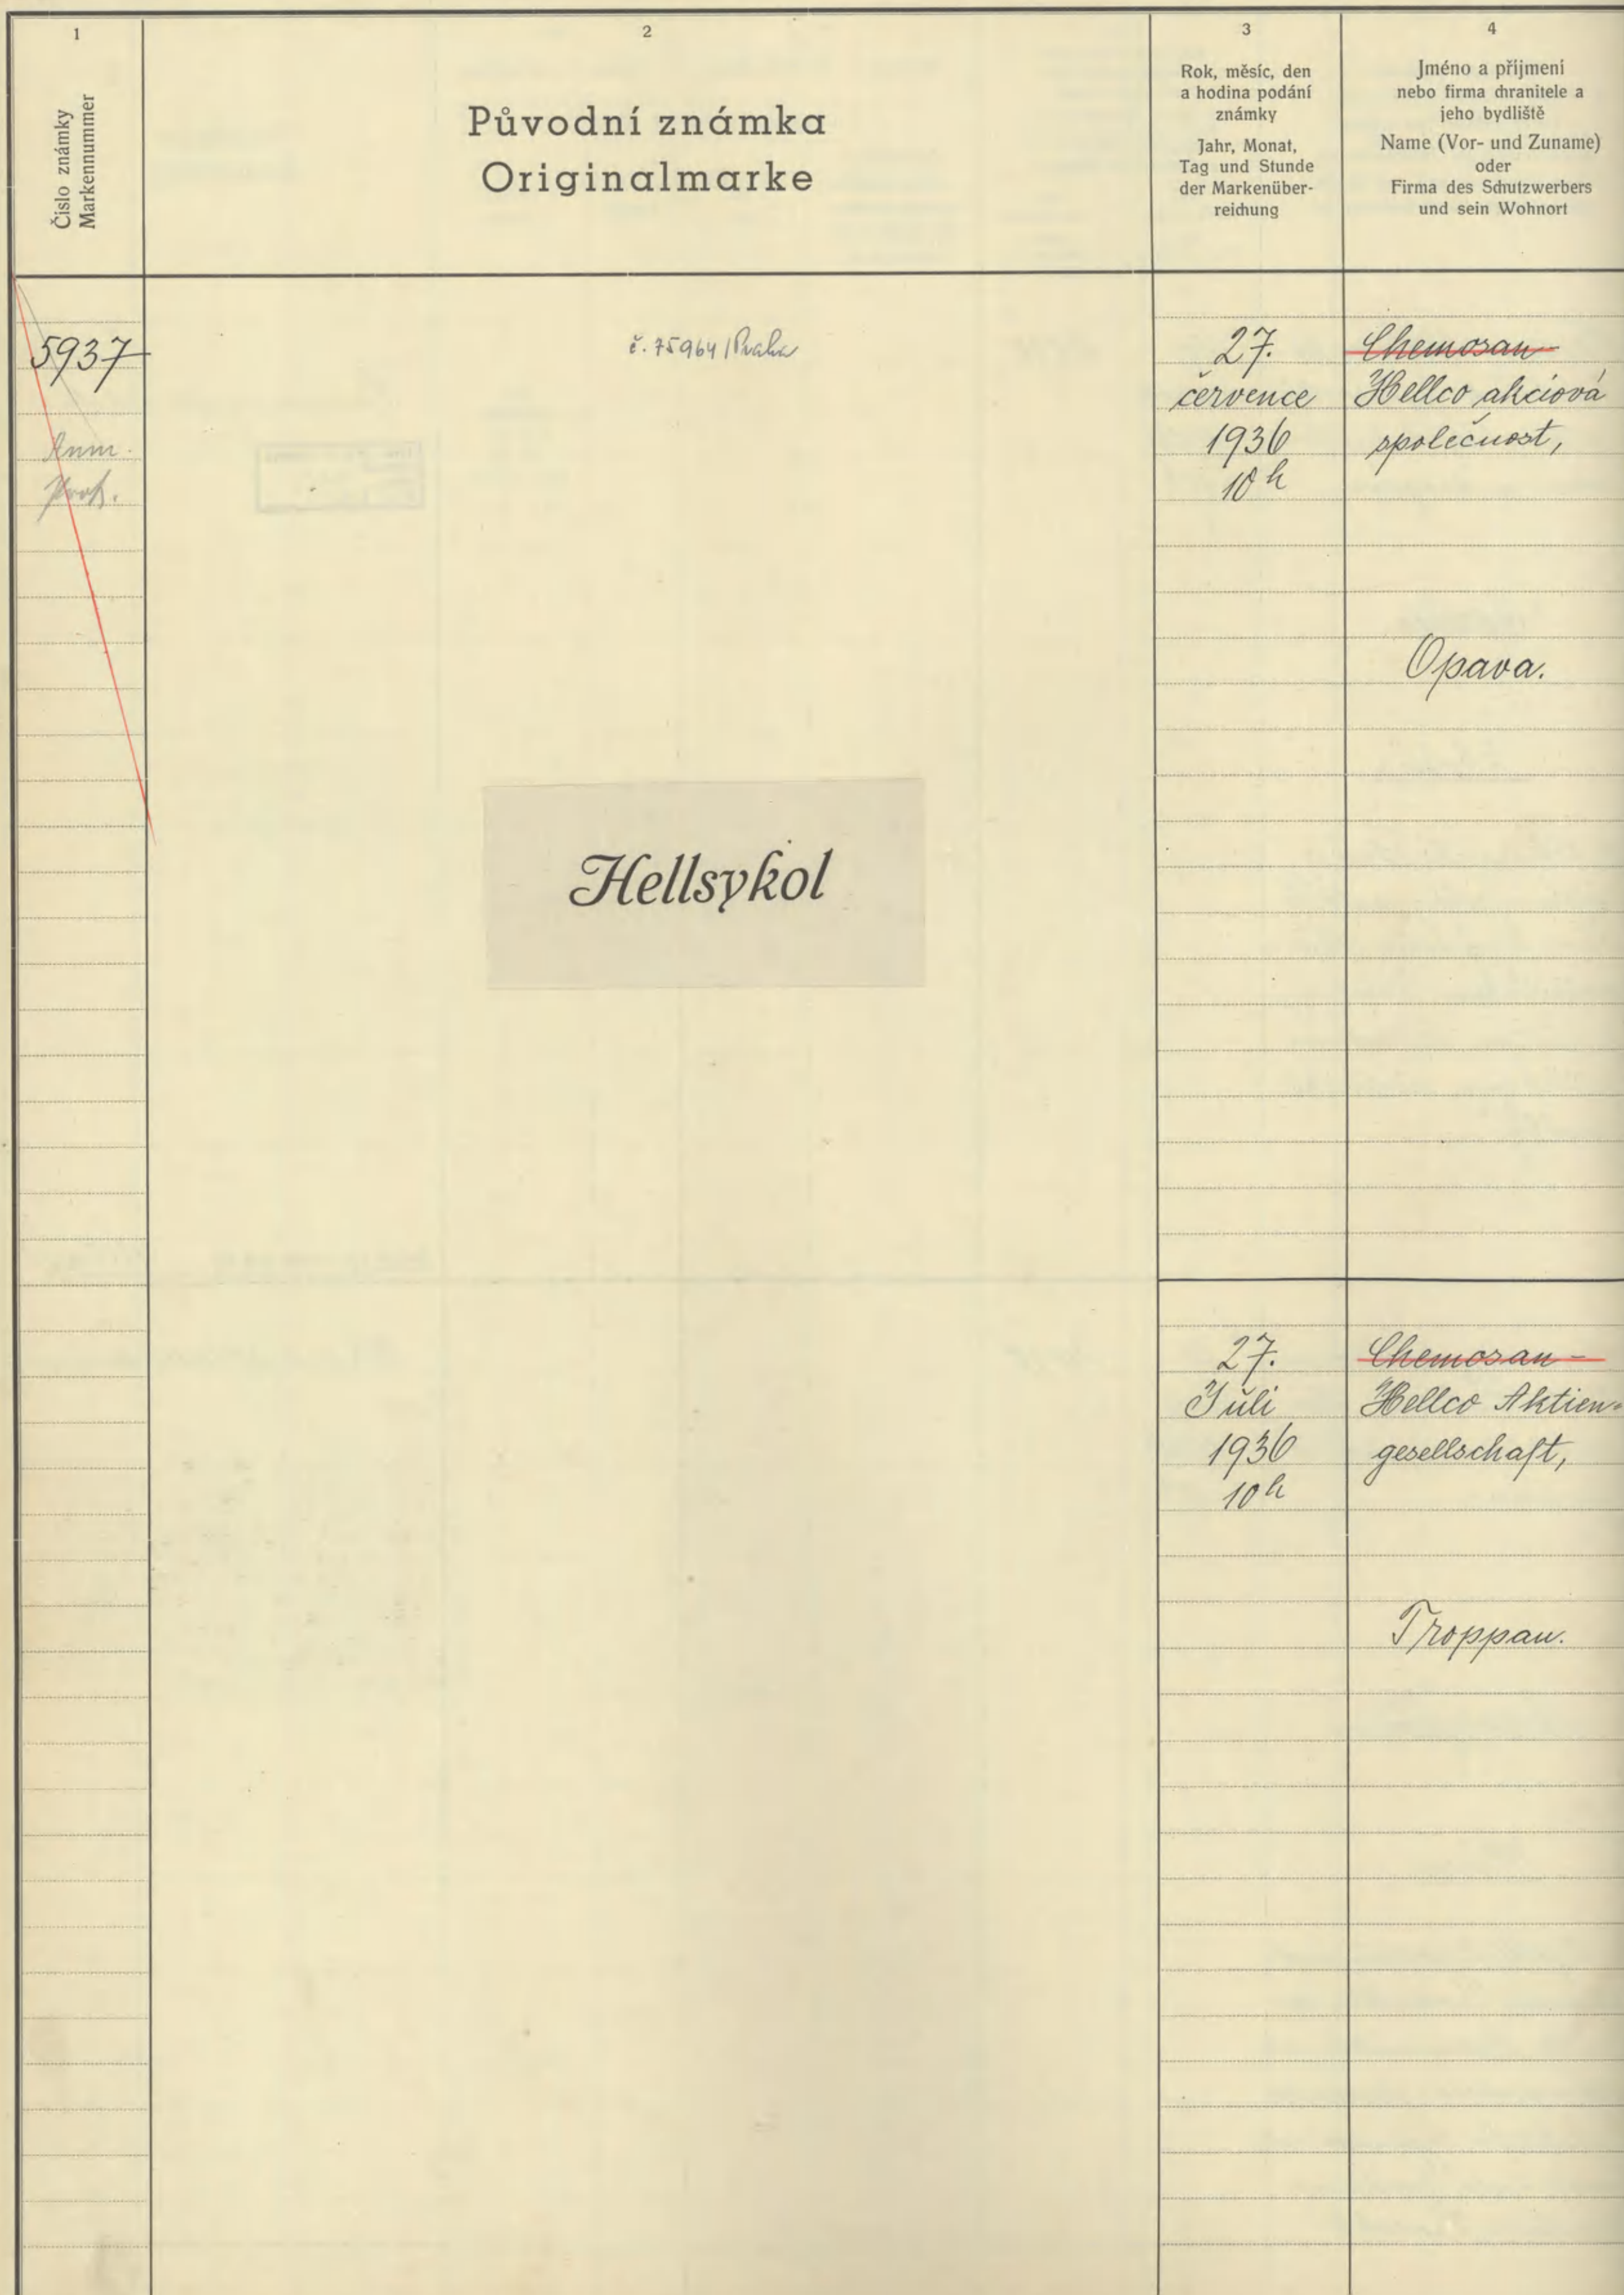 1
Číslo známky
Markennummer
2
Původní známka
Originalmarke
3
Rok, měsíc, den
a hodina podání
známky
Jahr, Monat,
Tag und Stunde
der Markenüber-
reichung
4
Jméno a přijmení
nebo firma chranitele a
jeho bydliště
Name (Vor- und Zuname)
oder
Firma des Schutzwerbers
und sein Wohnort
5937
č. 75964/Praha
27.
července
1936
10 h
Chemosan
Hellco akciová
společnost,
Opava.
Hellsykol
27.
Juli
1936
10 h
Chemosan-
Hellco Aktien-
gesellschaft,
Troppau.